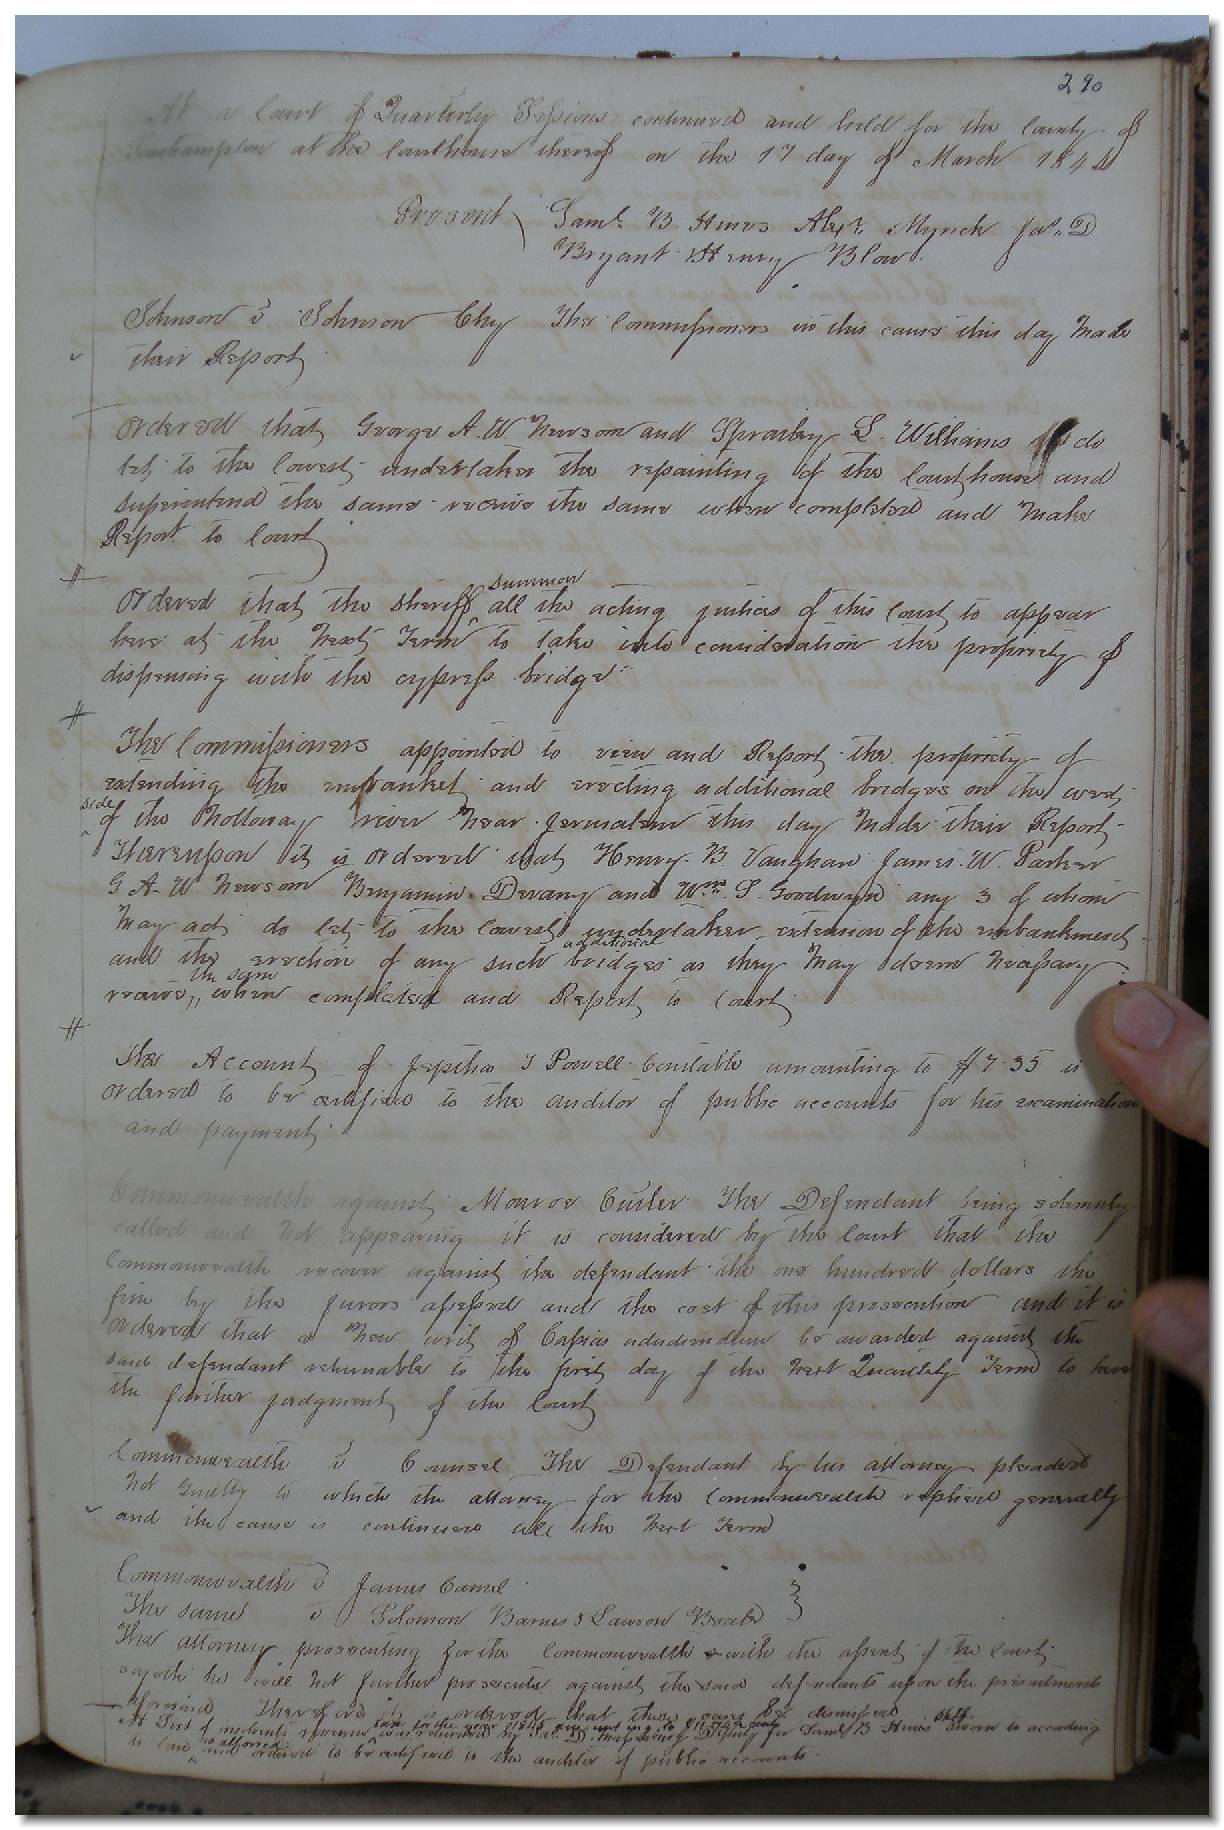 290
At a Court of Quarterly Sessions continued and held for the County of
Southampton at the Courthouse thereof on the 17 day of March 1844
Present Saml. B. Hines Alexr. Myrick Jas. D
Bryant & Henry Blow
Johnson v Johnson Chy The Commissioners in this cause this day Made
their Report
Ordered that George A. W Newsom and Spratley L. Williams do
let to the lowest undertaker the repainting of the Courthouse and
superintend the same receive the same when completed and Make
Report to Court
#
summon
Ordered that the Sheriff all the acting justices of this Court to appear
here at the Next Term to take into consideration the propriety of
dispensing with the cypress bridge
#
The Commissioners appointed to view and Report the propriety of
extending the embanket and erecting additional bridges on the west
side
of the Nottoway river Near Jerusalem this day Made their Report
Whereupon it is Ordered that Henry B. Vaughan James W. Parker
G A. W Newsom Benjamin Devany and Wm. S. Goodwyn any 3 of whom
May act do let to the lowest undertaker extension of the embankment
additional
and the erection of any such bridges as they May deem Necessary
the same
receive, when completed and Report to Court
#
The Account of Jeptha T Powell Constable amounting to $7.35 is
Ordered to be certified to the auditor of public accounts for his examination
and payment
Commonwealth against Monroe Cutler The Defendant being solemnly
called and Not appearing it is considered by the Court that the
Commonwealth recover against the defendant the one hundred dollars the
fine by the jurors assessed and the cost of this prosecution and it is
Ordered that a New writ of Capias adaudiendum be awarded against the
said defendant returnable to the first day of the Next Quarterly Term to hear
the further judgment of the Court
Commonwealth v Counsel The Defendant by his attorney pleaded
Not Guilty to which the attorney for the Commonwealth replied generally
and the cause is continued till the Next Term
Commonwealth v James Camel
The same v Solomon Barnes & Lawson Beale
The attorney prosecuting for the Commonwealth with the assent of the Court
sayeth he will Not further prosecute against the said defendants upon the presentments
aforesaid Therefore it is ordered that these causes be dismissed
A List of insolvents revenue tax in the year 1843 amounting to was returned by Jas. D. Deputy for Saml B Hines Shff. Sworn to according
to law is allowed and ordered to be certified to the auditor of public accounts